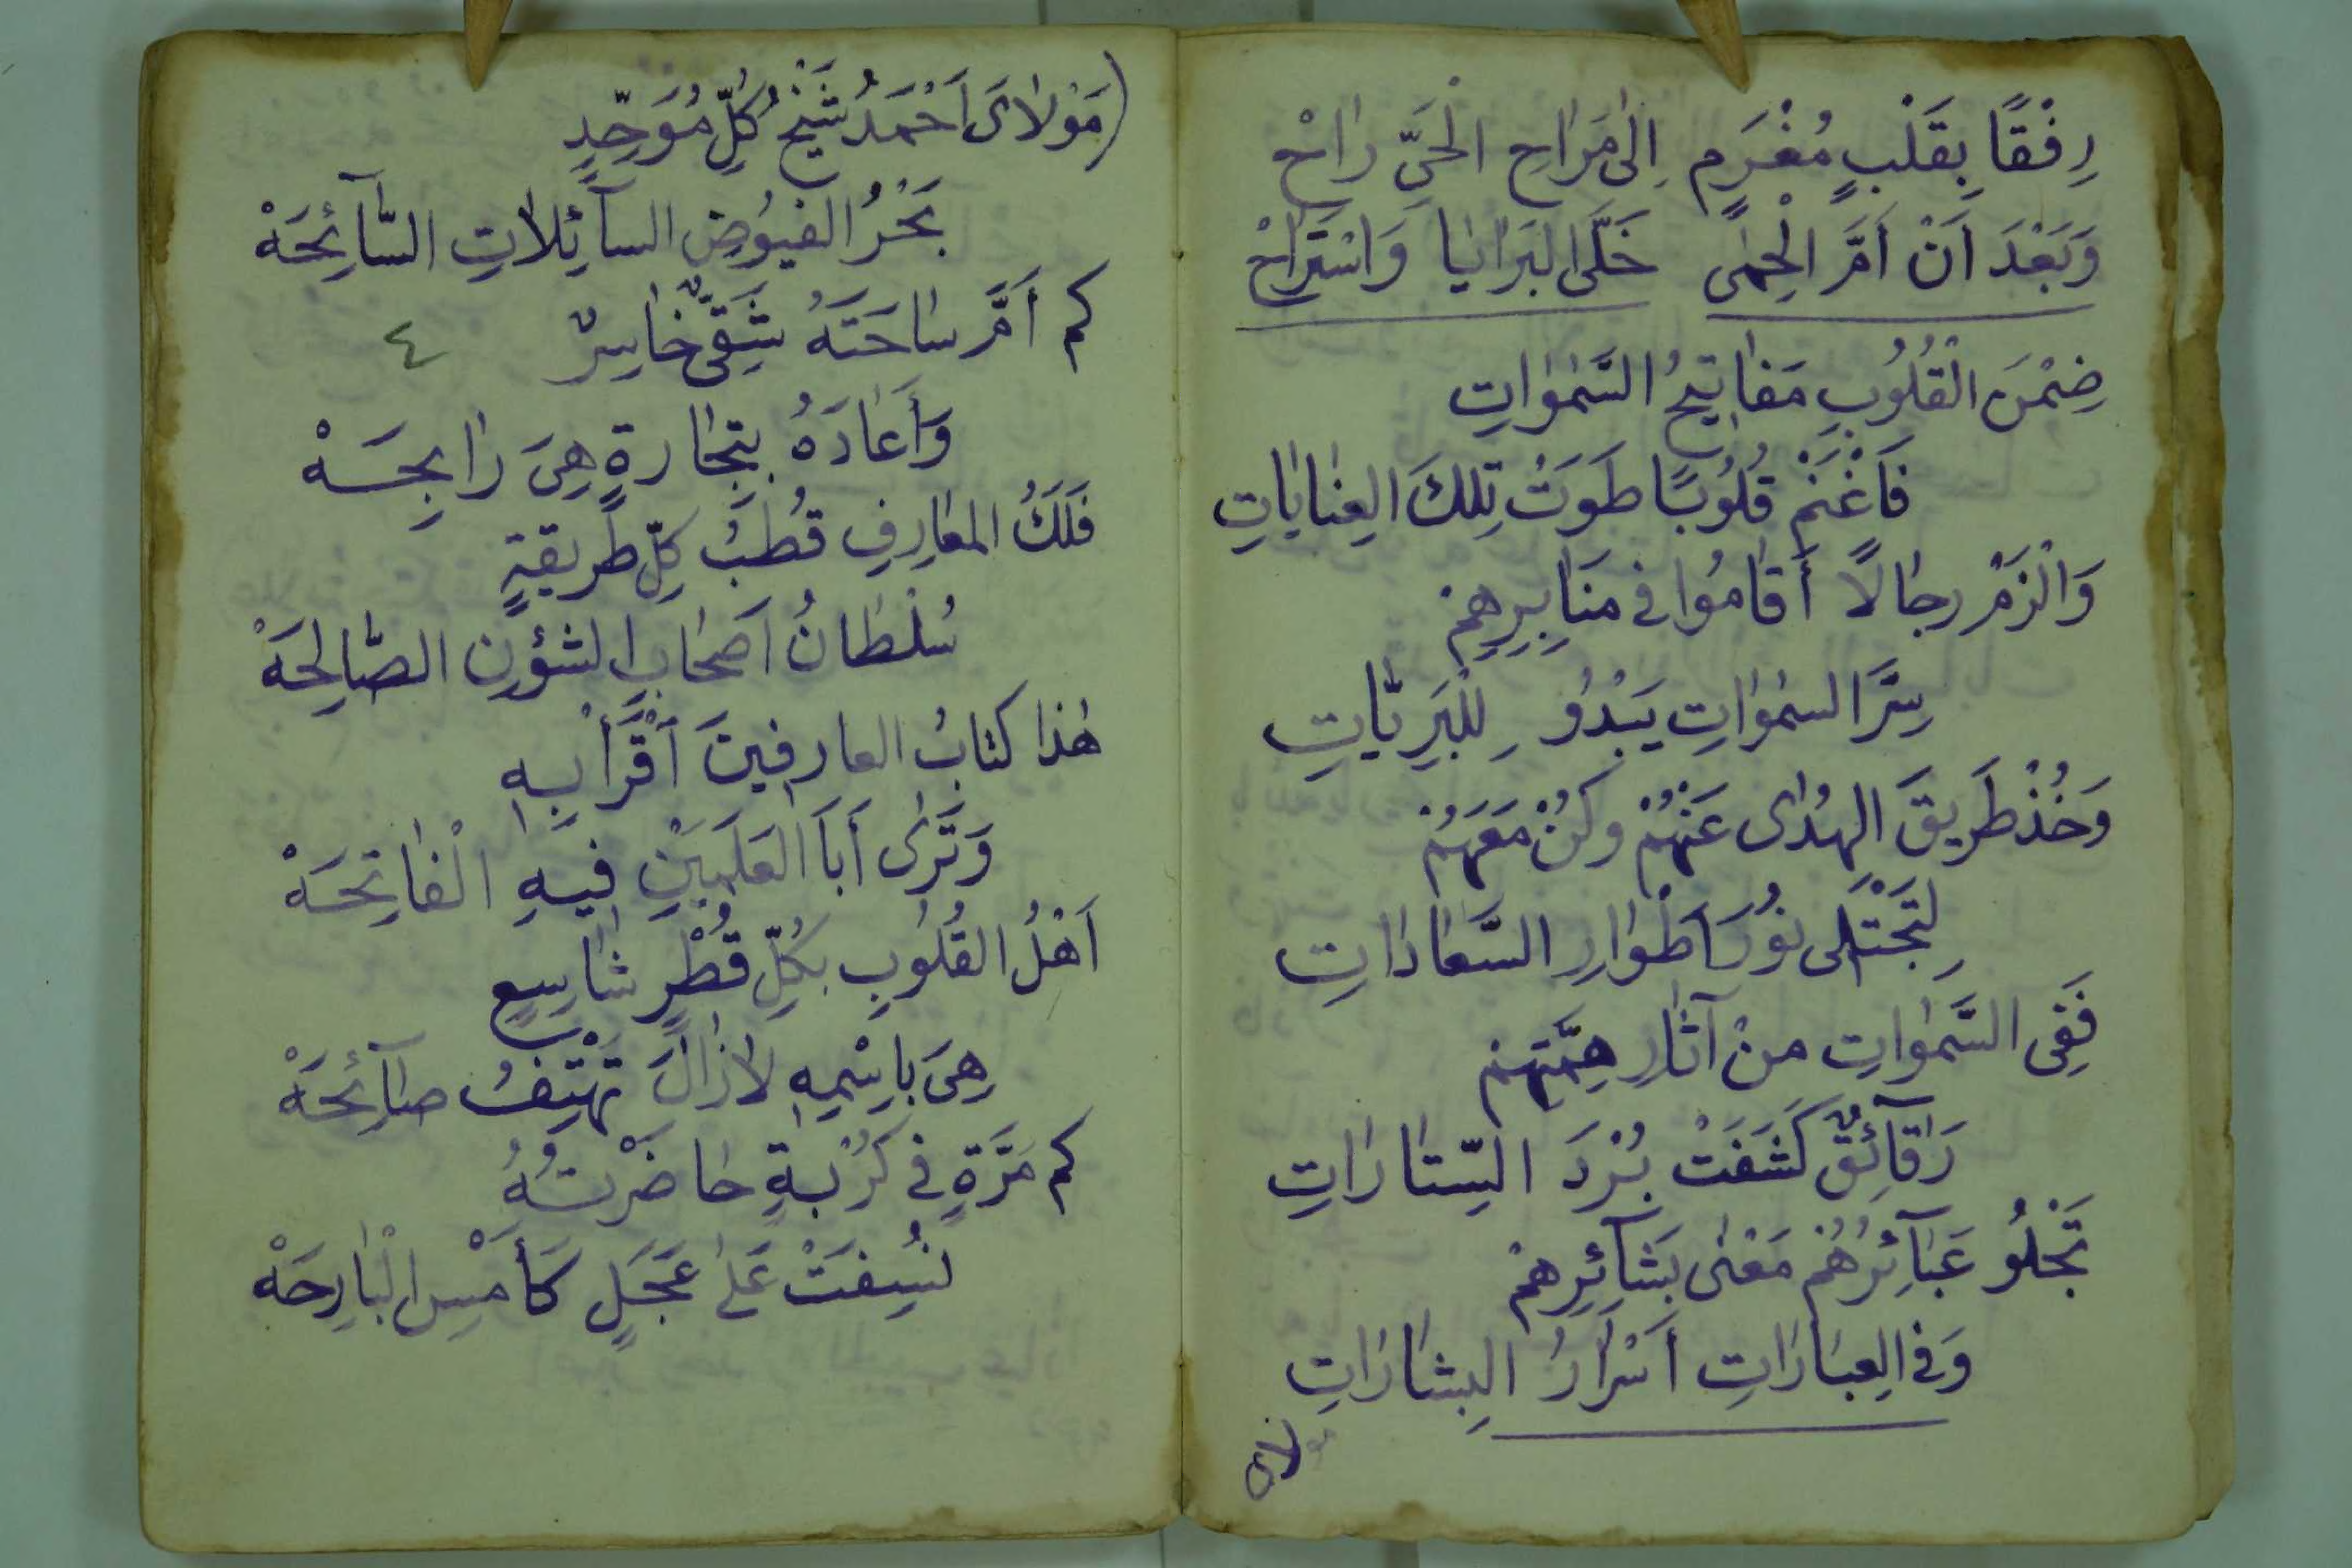 رِفْقًا بِقَلْبٍ مُغْرَمٍ إِلىٰ مَرٰاحِ الْحَيِّ رٰاحْ
وَبَعْدَ اَنْ اَمَّرَ الْحِمٰى خَلَّى البَرٰايٰا وَاسْتَرٰاحْ
ضِمْنَ الْقُلُوبِ مَفٰاتِيحُ السَّمٰوٰاتِ
فَاَغْنَمْ قُلُوبًا طَوَتْ تِلكَ العِنٰايٰاتِ
وَالْزَمْ رِجٰالًا أَقٰامُوا في مَنَابِرِهِمْ
سِرَّ السمٰوٰاتِ يَبْدُو لِلْبَرِيّٰاتِ
وَخُذْ طَرِيقَ الهُدٰى عَنْهُمْ وكُنْ مَعَهُمْ
لِتَجْتَلى نُورَ اَطْوٰارِ السَّعٰادٰاتِ
فَفِى السَّمٰوٰاتِ مِنْ آثٰارِ هِمَّتِهِمْ
رَقٰآئِقٌ كَشَفَتْ بُرْدَ السِّتٰارٰاتِ
تَجْلُو عَبٰآئِرُهُمْ مَعْنٰى بَشٰائِرِهِمْ
وَفى العِبٰارٰاتِ أَسْرٰارُ البِشٰارٰاتِ
مَوْلاٰىَ اَحْمَدُ شَيْخُ كُلِّ مُوَحِّدٍ
بَحْرُ الفُيُوضِ السآئِلاٰتِ السّٰآئِحَهْ
كم أَمَّ سٰاحَتَهُ شَقِىٌّ خٰاسِرٌ
٤
وَأَعٰادَهُ بِتِجٰارةٍ هِىَ رٰابِحَهْ
فَلَكُ المعٰارِفِ قُطْبُ كلِّ طَرِيقةٍ
سُلْطٰانُ اَصحٰابِ الشؤُنِ الصّٰالِحَهْ
هٰذا كتابُ العارِفينَ اَقْرَأْ بِهِ
وَتَرٰى أَبَا العَلَمَيْنِ فِيهِ الْفٰاتِحَهْ
اَهْلُ القُلُوبِ بكُلِّ قُطْرٍ شٰاسِعٍ
هِىَ بِاسْمِهِ لاٰزٰالَ تَهْتِفُ صٰآئِحَهْ
كم مَرَّةٍ في كُرْبةٍ حٰاضَرْتُهُ
نُسِفَتْ عَلىٰ عَجَلٍ كَأَمْسِ الْبٰارِحَهْ